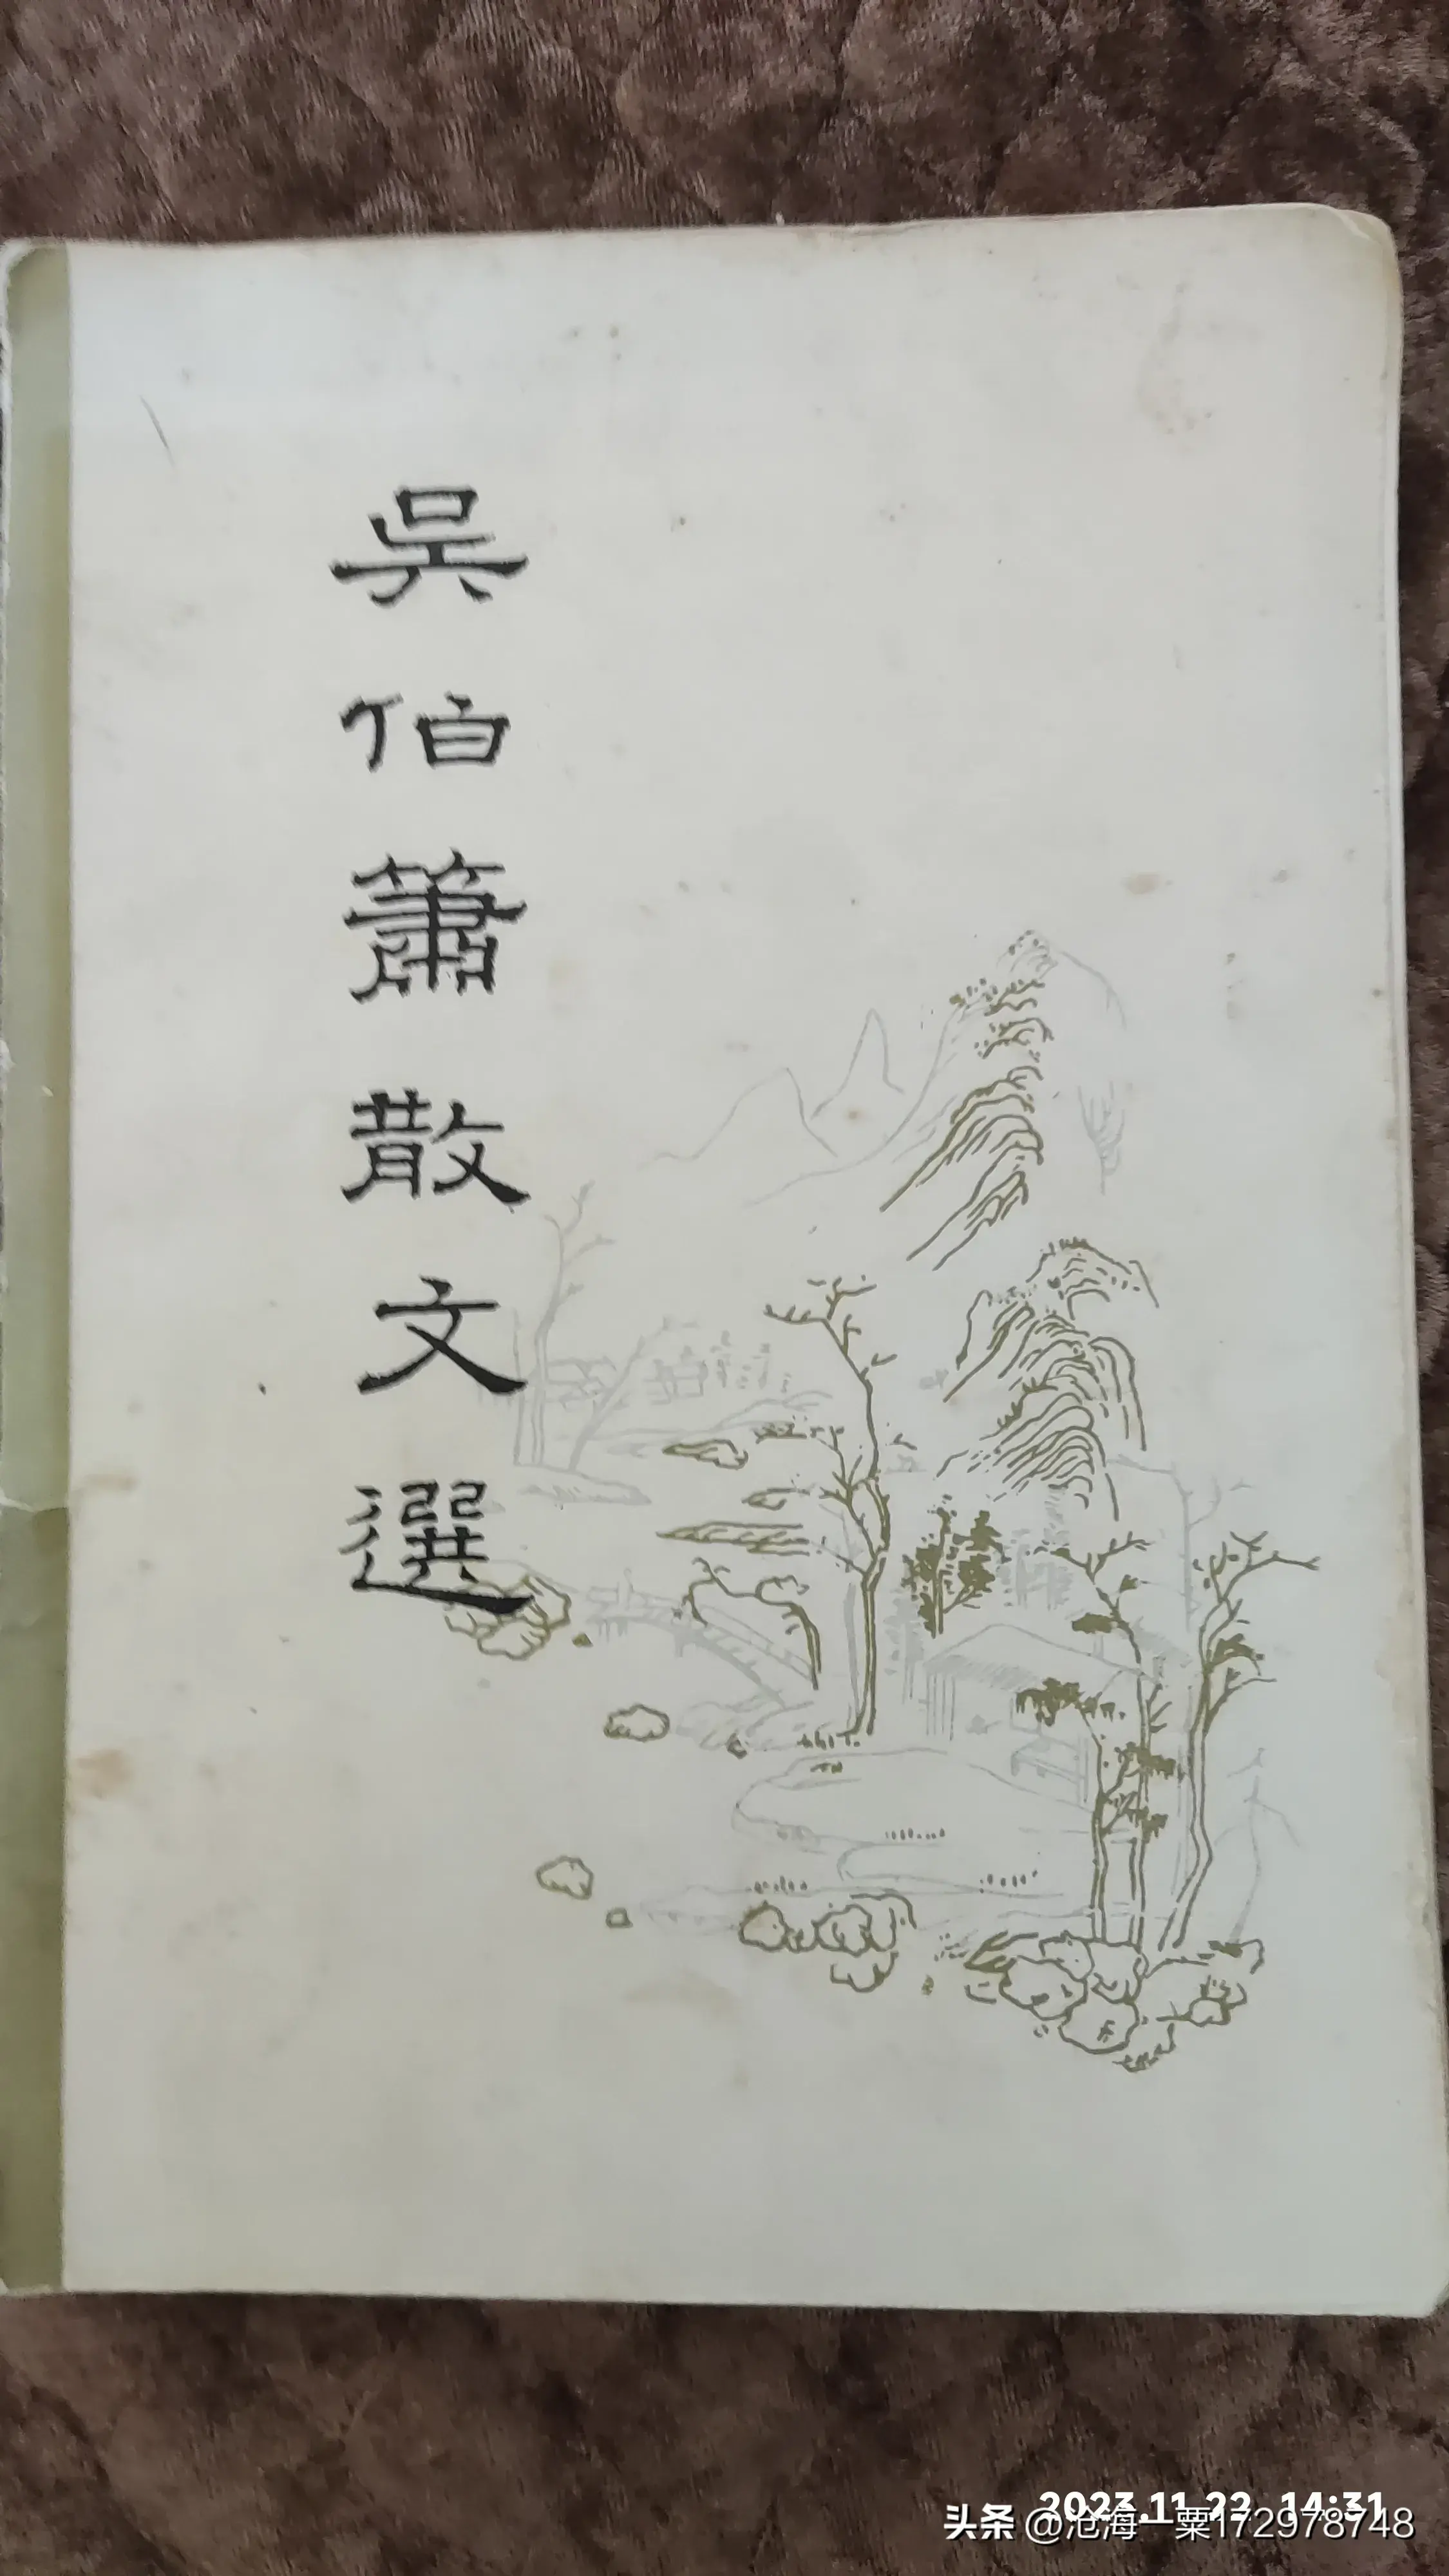 吳伯簫散文選
2023.11.22 14:31
头条 @沧海一粟172978748